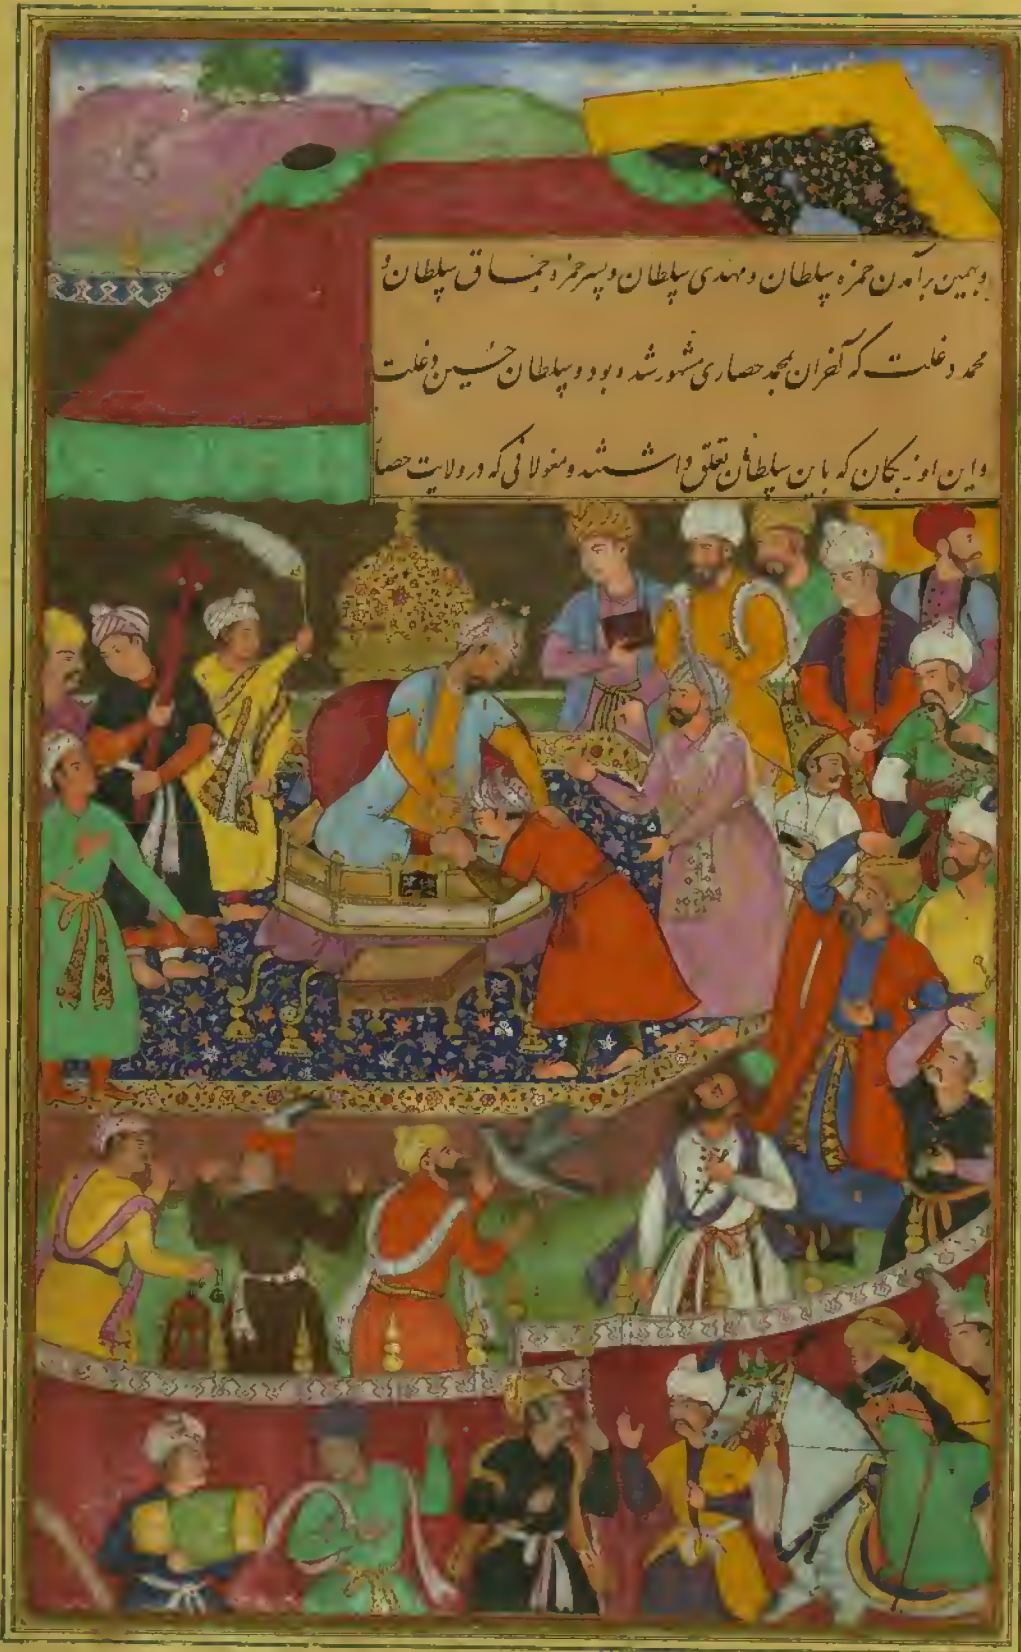 و همین برآمدن حمزه سلطان و مهدی سلطان و پسر حمزه و مماق سلطان و
محمد دغلت که آخران بمحمد حصاری مشهور شده بود و سلطان حسین دغلت
و این اوزبکان که باین سلطانان تعلق داشتند و مغولانی که در ولایت حصا